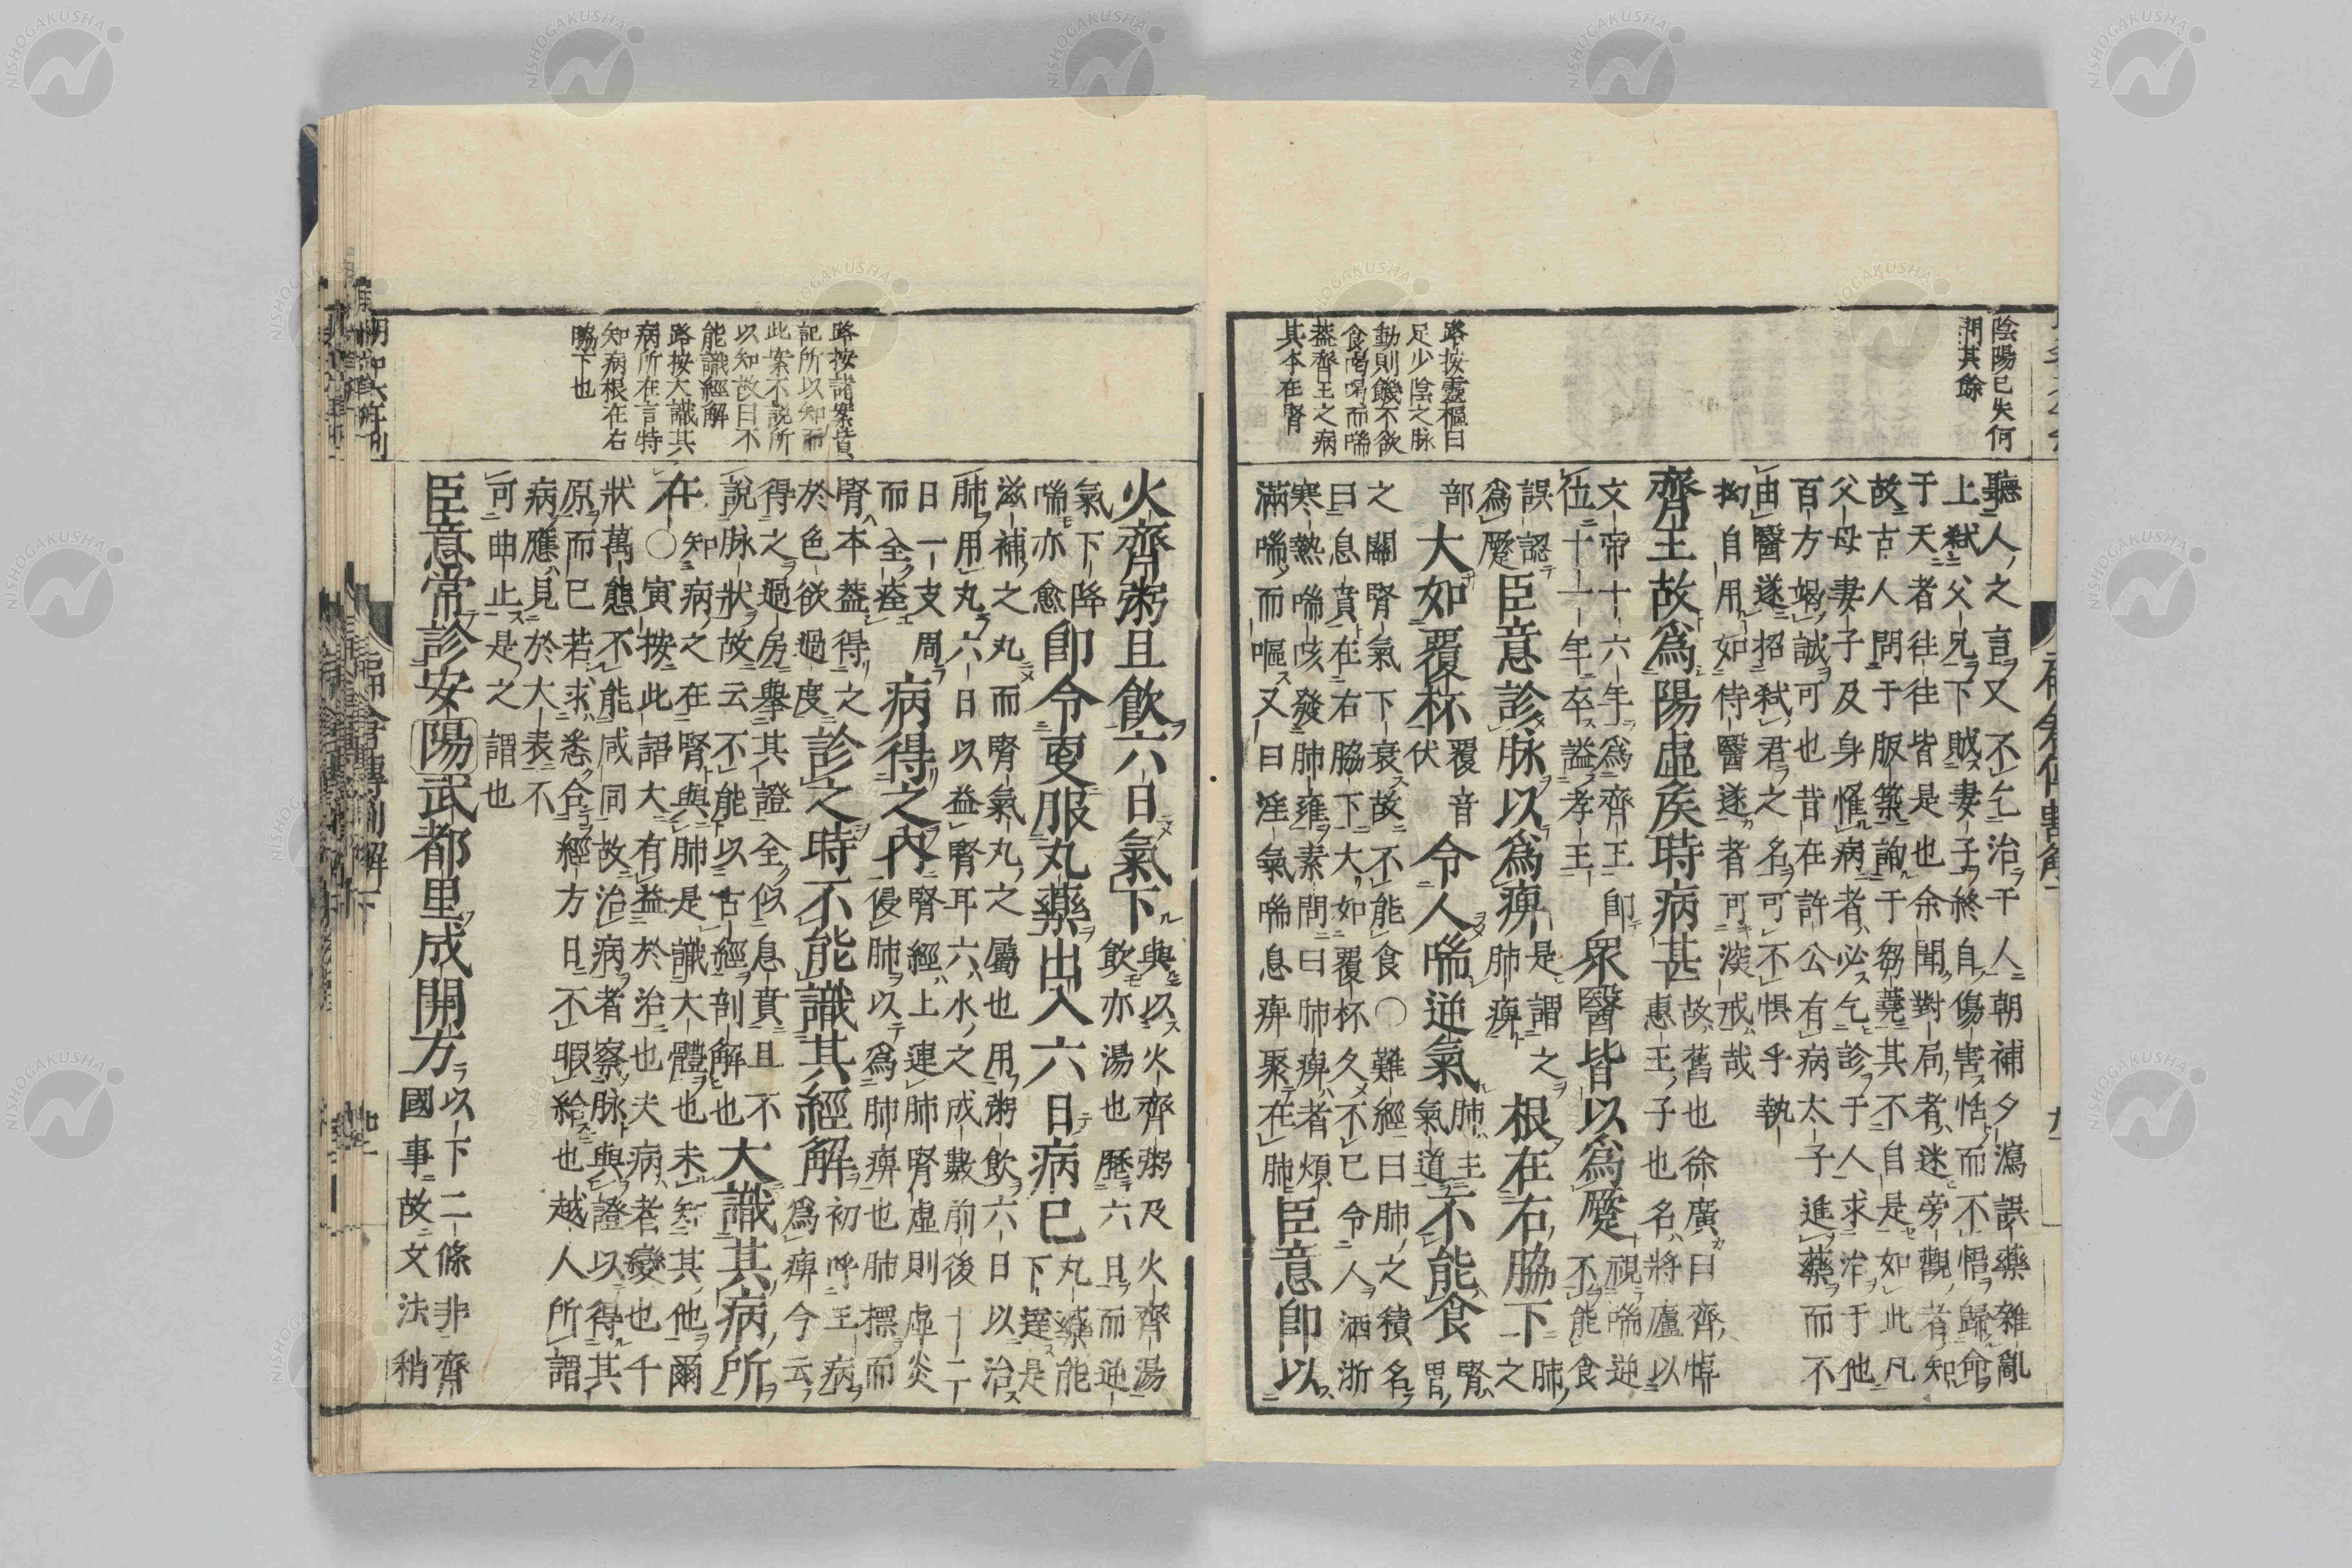 陰陽已失何
問其餘
路按靈樞曰
足少陰之脉
動則饑不欲
食喝喝而喘
蓋齊王之病
其本在腎
聽人之言又不乞治于人朝補夕瀉誤藥雜亂
上弑父兄下賊妻子終自傷害恬而不悟歸命
于天者往往皆是也余聞對局者迷旁觀者知
故古人問于販築詢于芻蕘其不自是如此凡
父母妻子及身罹病者必乞診于人求治于他
百方竭誠可也昔在許公有病太子進藥而不
由醫遂招弑君之名可不懼乎執
拘自用如侍醫遂者可深戒哉
齊王故爲陽虛矦時病甚故舊也徐廣曰齊悼
惠王子也名將廬以
文帝十六年爲齊王即
位十一年卒謚孝王衆醫皆以爲蹷視喘逆
不能食
誤認
爲蹷臣意診脉以爲痺是謂之
肺痺根在右脇下肺之
部大如覆杯覆音
伏令人喘逆氣肺主
氣道不能食腎胃
之關腎氣下衰故不能食○難經曰肺之積名
曰息賁在右脇下大如覆杯久不已令人洒淅
寒熱喘咳發肺雍素問曰肺痺者煩
滿喘而嘔又曰淫氣喘息痺聚在肺臣意卽以
路按諸案意
記所以知而
此案不說所
以知故曰不
能識經解
路按大識其
病所在言特
知病根在右
脇下也
火齊粥且飮六日氣下與以火齊粥及火齊湯
飮亦湯也歷六日而逆
氣下降
喘亦愈卽令更服丸藥出入六日病已丸藥能
下達是
滋補之丸而腎氣丸之屬也用粥飮六日以治
肺用丸六日以益腎耳六水之成數前後十二
日一支周
而全痊病得之內腎經上連肺腎虛則虛炎
侵肺以爲肺痺也肺標而
腎本蓋得之
於色欲過度診之時不能識其經解初呼王病
爲痺今云
得之過房擧其證全似息賁且不
說脉狀故云不能以古經剖解也大識其病所
在知病之在腎與肺是識大體也未知其他爾
○寅按此語大有益於治也夫病者變也千
狀萬態不能咸同故治病者察脉與證以得其
原而已若求悉合經方日不暇給也越人所謂
病應見於大表不
可曲止是之謂也
臣意常診安陽武都里成開方以下二條非齊
國事故文法稍